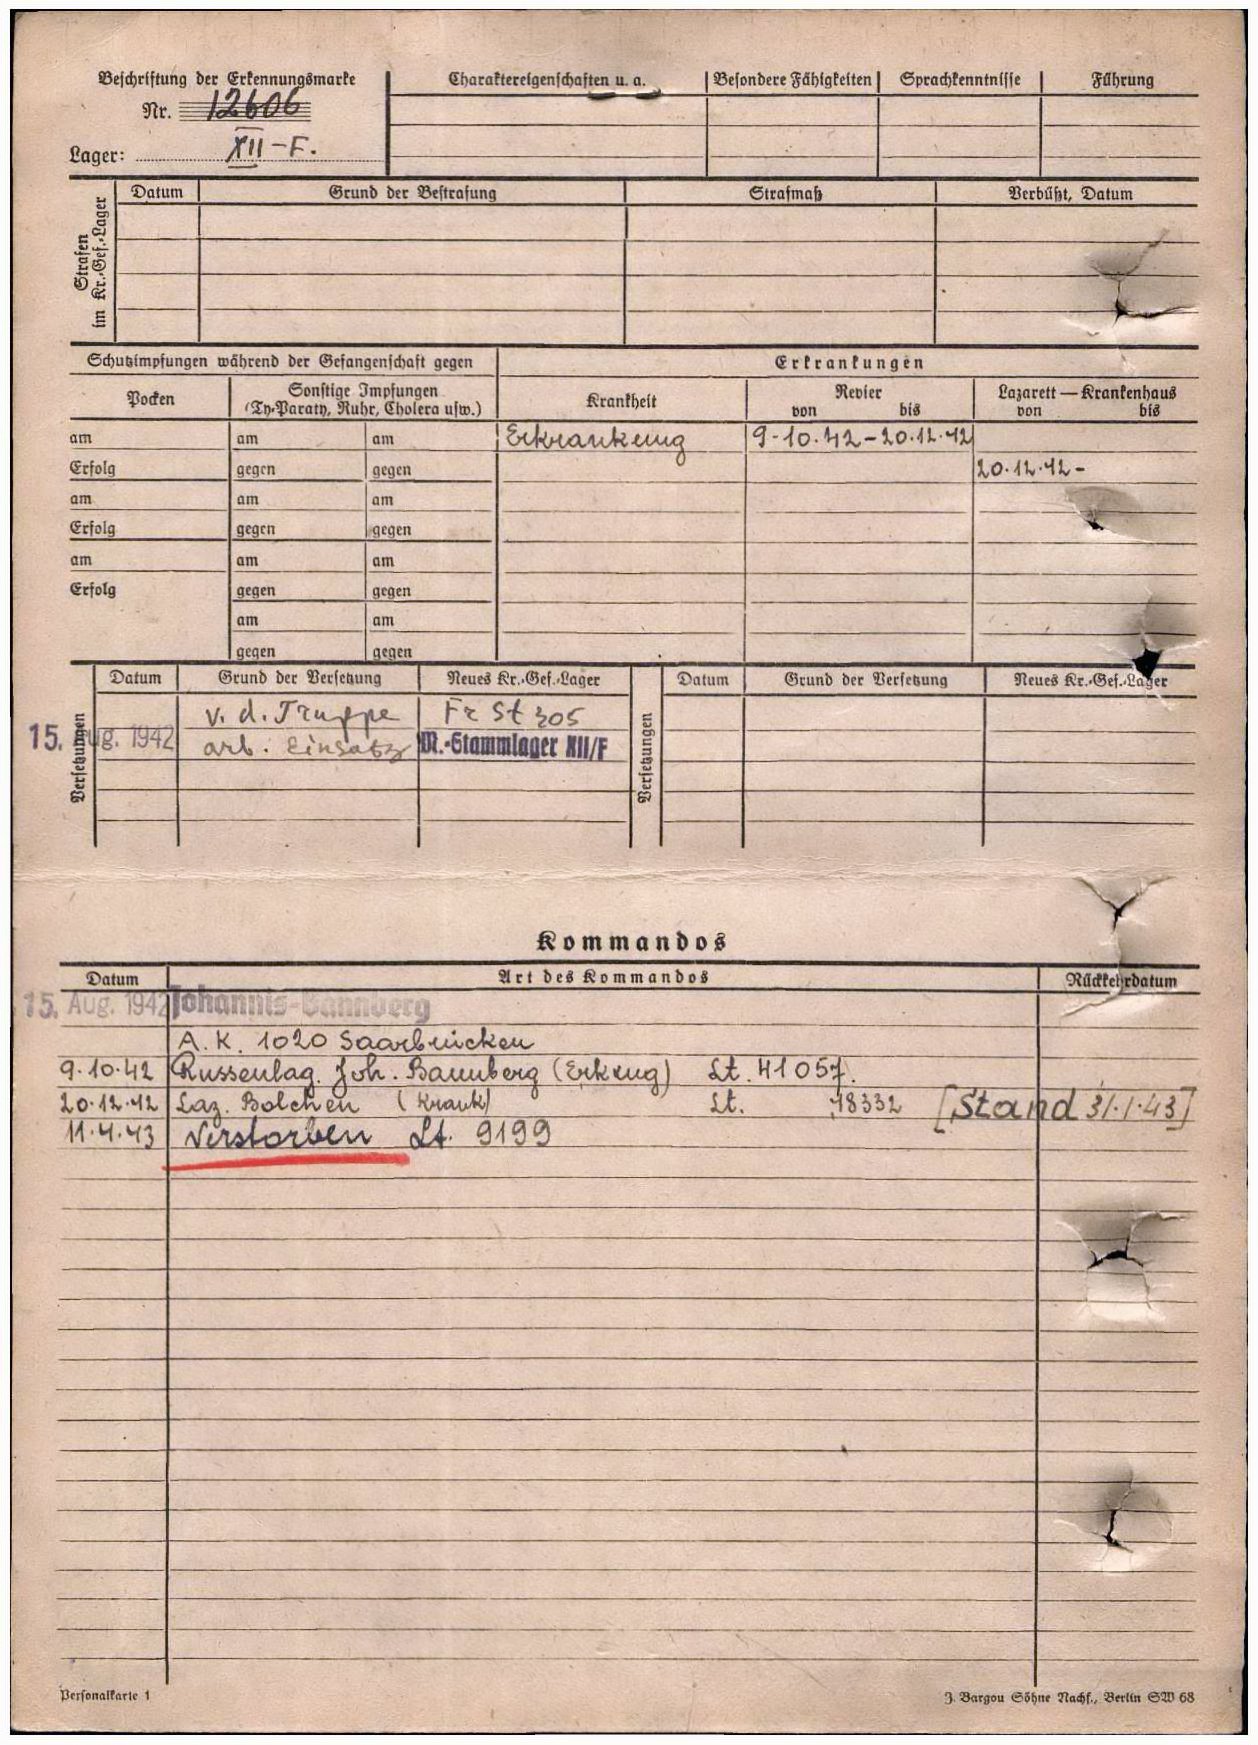 Beschriftung der Erkennungsmarke
Nr. 12606
Lager: XII-F.
Charaktereigenschaften u. a. Besondere Fähigkeiten Sprachkenntnisse Führung
Strafen im Kr.-Gef.-Lager
Datum Grund der Bestrafung Strafmaß Verbüßt, Datum
Schutzimpfungen während der Gefangenschaft gegen
Erkrankungen
Pocken
Sonstige Impfungen
(Ty-Paraty, Ruhr, Cholera usw.)
Krankheit
Revier
von bis
Lazarett — Krankenhaus
von bis
am am am Erkrankung 9.10.42 - 20.12.42
Erfolg gegen gegen 20.12.42 -
am am am
Erfolg gegen gegen
am am am
Erfolg gegen gegen
am am
gegen gegen
Versetzungen
Datum Grund der Versetzung Neues Kr.-Gef.-Lager
v. d. Truppe Fr St 305
15. Aug. 1942 arb. Einsatz M.-Stammlager XII/F
Versetzungen
Datum Grund der Versetzung Neues Kr.-Gef.-Lager
Kommandos
Datum Art des Kommandos Rückkehrdatum
15. Aug. 1942 Johannis-Bannberg
A.K. 1020 Saarbrücken
9.10.42 Russenlag. Joh. Bannberg (Erkrug) Lt. 41057.
20.12.42 Laz. Bolchen (Krank) Lt. 18332 [Stand 31.1.43]
11.4.43 Verstorben Lt. 9199
Personalkarte 1
J. Bargou Söhne Nachf., Berlin SW 68